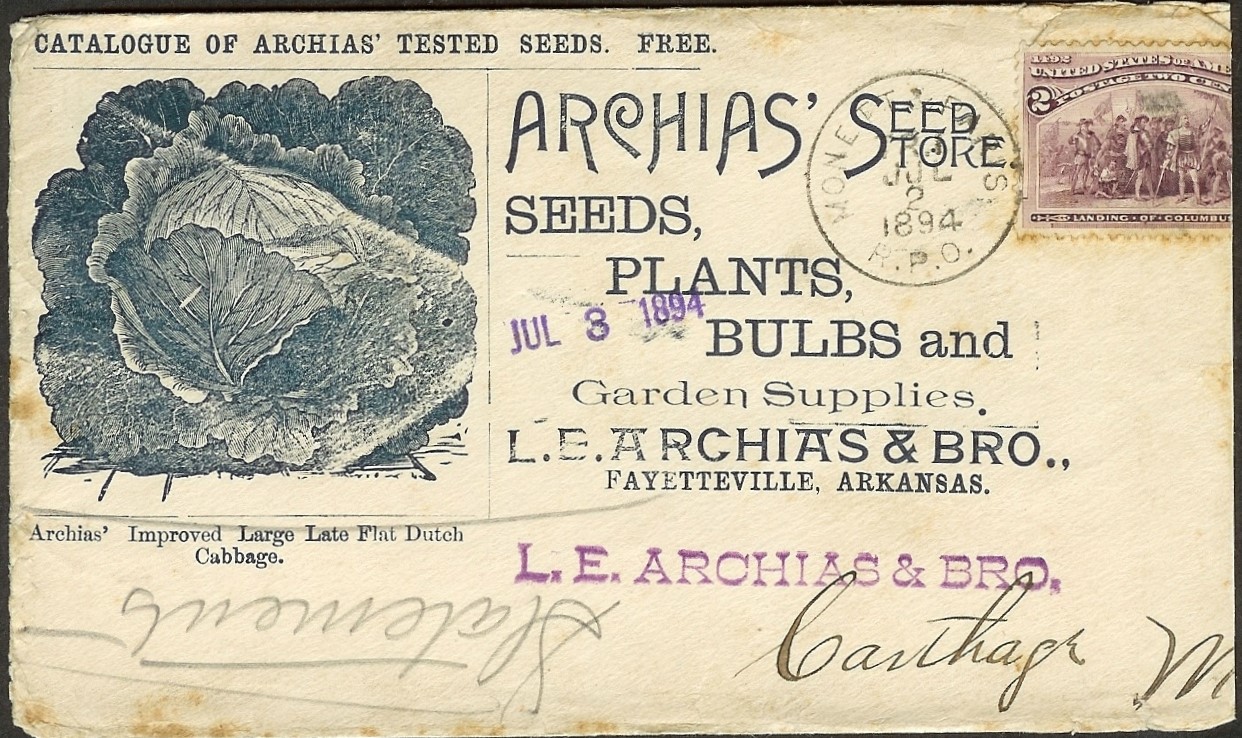 CATALOGUE OF ARCHIAS' TESTED SEEDS. FREE.
ARCHIAS' SEED STORE
SEEDS,
PLANTS,
BULBS and
Garden Supplies.
L.E. ARCHIAS & BRO.,
FAYETTEVILLE, ARKANSAS.
Archias' Improved Large Late Flat Dutch
Cabbage.
JUL 3 1894
JUL
2
1894
R.P.O.
1492
UNITED STATES OF AME
2 POSTAGE TWO CEN
LANDING OF COLUMBUS
L. E. ARCHIAS & BRO.
Carthage M
Statements